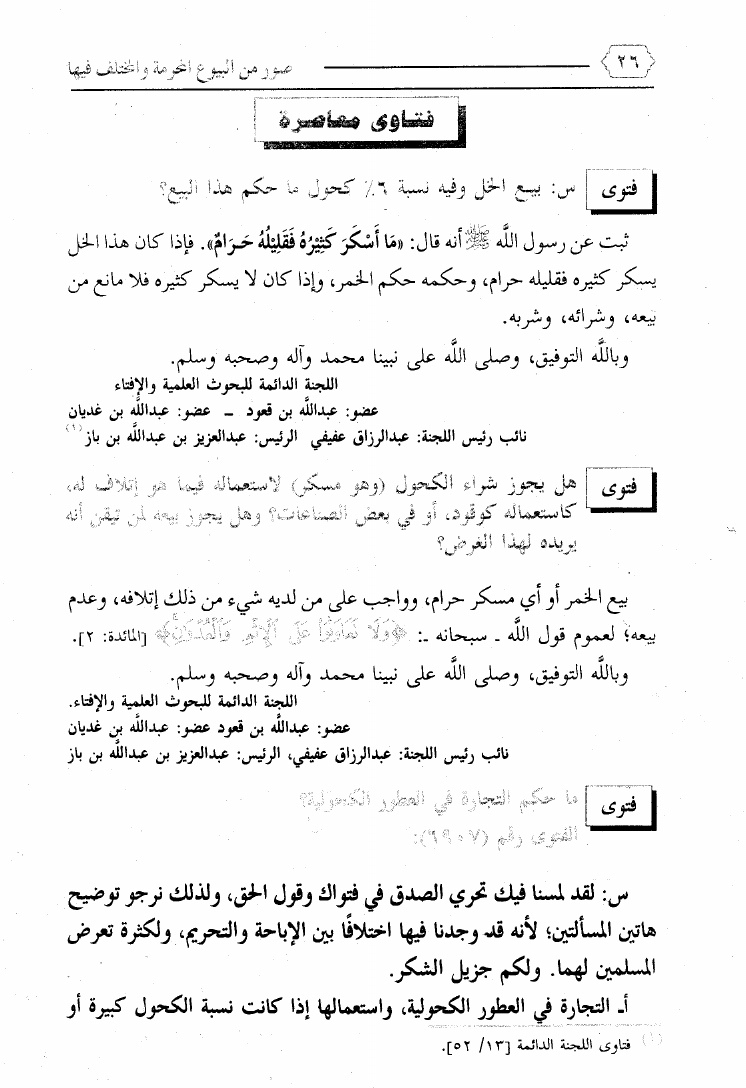 ٢٦
صور من البيوع المحرمة والمختلف فيها
فتاوى معاصرة
فتوى
س: بيع الخل وفيه نسبة ٦٪ كحول ما حكم هذا البيع؟
ثبت عن رسول اللَّه ﷺ أنه قال: «مَا أَسْكَرَ كَثِيْرُهُ فَقَلِيْلُهُ حَرَامٌ». فإذا كان هذا الخل
يسكر كثيره فقليله حرام، وحكمه حكم الخمر، وإذا كان لا يسكر كثيره فلا مانع من
بيعه، وشرائه، وشربه.
وباللَّه التوفيق، وصلى اللَّه على نبينا محمد وآله وصحبه وسلم.
اللجنة الدائمة للبحوث العلمية والإفتاء
عضو: عبداللَّه بن قعود ــ عضو: عبداللَّه بن غديان
نائب رئيس اللجنة: عبدالرزاق عفيفي الرئيس: عبدالعزيز بن عبداللَّه بن باز(١)
فتوى
هل يجوز شراء الكحول (وهو مسكر) لاستعماله فيما هو إتلاف له،
كاستعماله كوقود، أو في بعض الصناعات؟ وهل يجوز بيعه لمن تيقن أنه
يريده لهذا الغرض؟
بيع الخمر أو أي مسكر حرام، وواجب على من لديه شيء من ذلك إتلافه، وعدم
بيعه؛ لعموم قول اللَّه ـ سبحانه ـ: ﴿وَلَا تَعَاوَنُوا عَلَى ٱلْإِثْمِ وَٱلْعُدْوَٰنِ﴾ [المائدة: ٢].
وباللَّه التوفيق، وصلى اللَّه على نبينا محمد وآله وصحبه وسلم.
اللجنة الدائمة للبحوث العلمية والإفتاء.
عضو: عبداللَّه بن قعود عضو: عبداللَّه بن غديان
نائب رئيس اللجنة: عبدالرزاق عفيفي، الرئيس: عبدالعزيز بن عبداللَّه بن باز
فتوى
ما حكم التجارة في العطور الكحولية؟
الفتوى رقم (٦٩٠٧):
س: لقد لمسنا فيك تحري الصدق في فتواك وقول الحق، ولذلك نرجو توضيح
هاتين المسألتين؛ لأنه قد وجدنا فيها اختلافًا بين الإباحة والتحريم، ولكثرة تعرض
المسلمين لهما. ولكم جزيل الشكر.
أـ التجارة في العطور الكحولية، واستعمالها إذا كانت نسبة الكحول كبيرة أو
(١) فتاوى اللجنة الدائمة [١٣/ ٥٢].